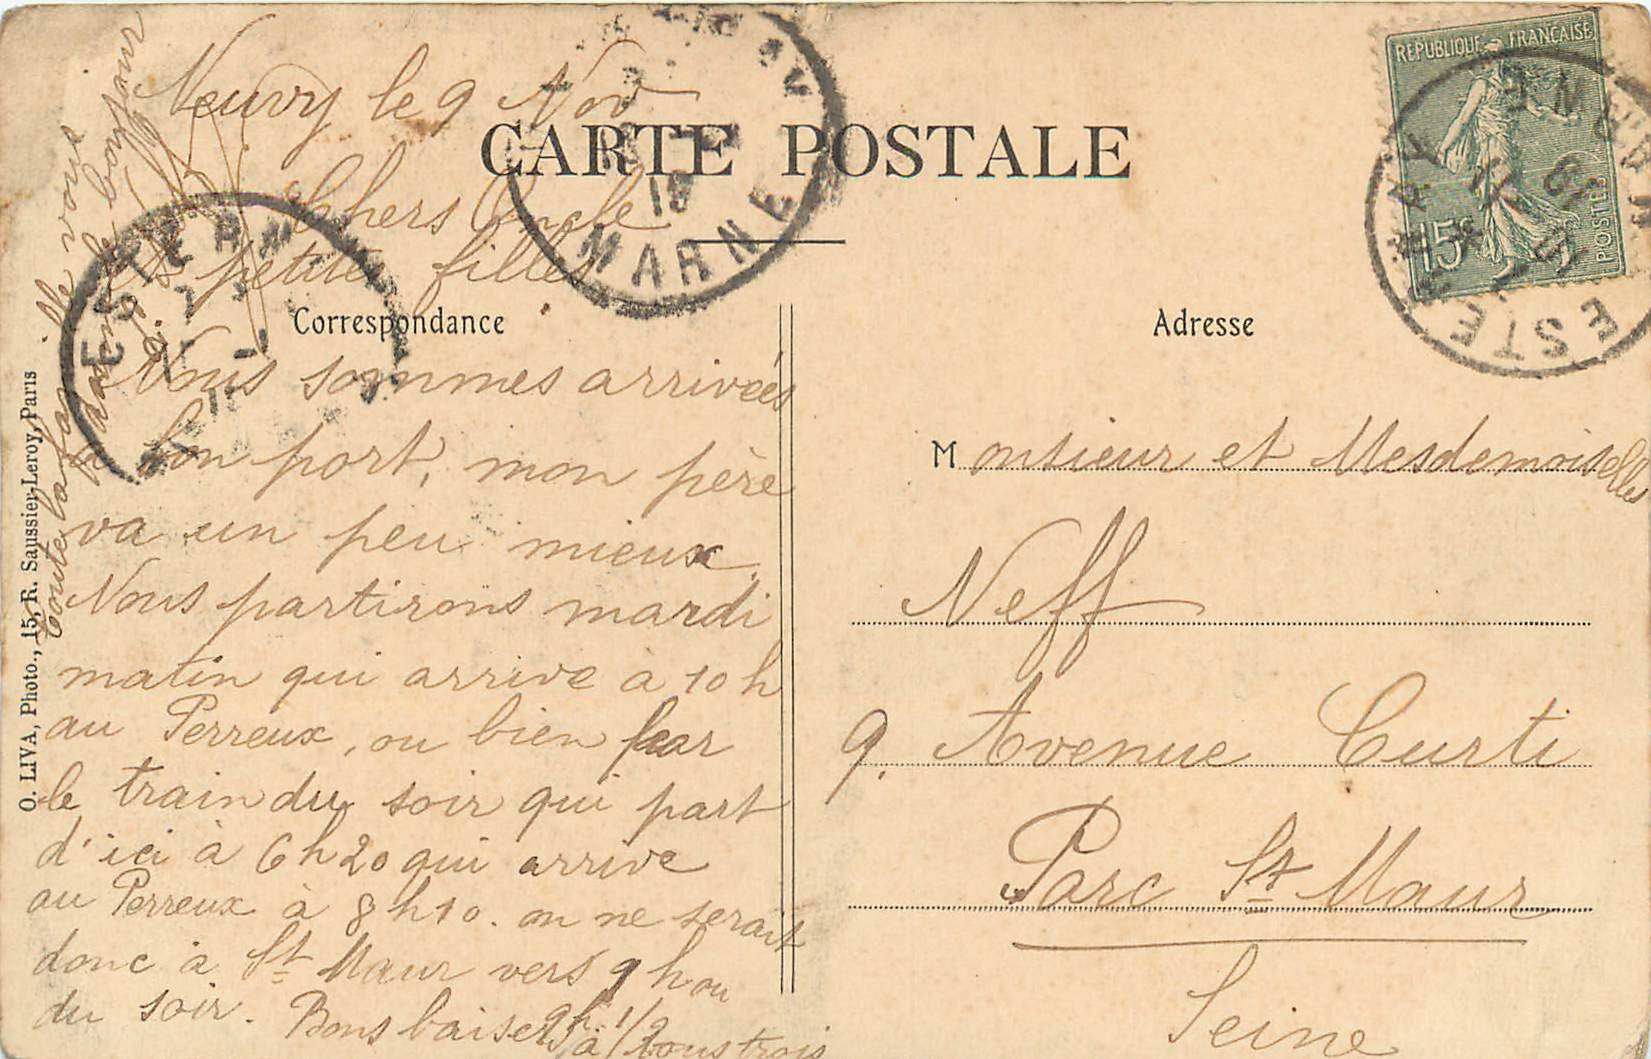 Neuvy le 9 Nov
CARTE POSTALE
Chers Oncle
et petites filles
Correspondance
Nous sommes arrivées
à bon port, mon père
va un peu mieux.
Nous partirons mardi
matin qui arrive à 10 h
au Perreux, ou bien par
le train du soir qui part
d'ici à 6 h 20 qui arrive
au Perreux à 8 h 10. on ne serait
donc à St Maur vers 9 h ou
9 h. 1/2
du soir. Bons baisers à tous trois
Toute la famille vous
bonjour
O. LIVA, Photo., 15, R. Saussier-Leroy, Paris
ESTERNAY
MARNE
REPUBLIQUE FRANÇAISE
15c
POSTES
ESTERNAY
MARNE
Adresse
Monsieur et Mesdemoiselles
Neff
9. Avenue Curti
Parc St Maur
Seine